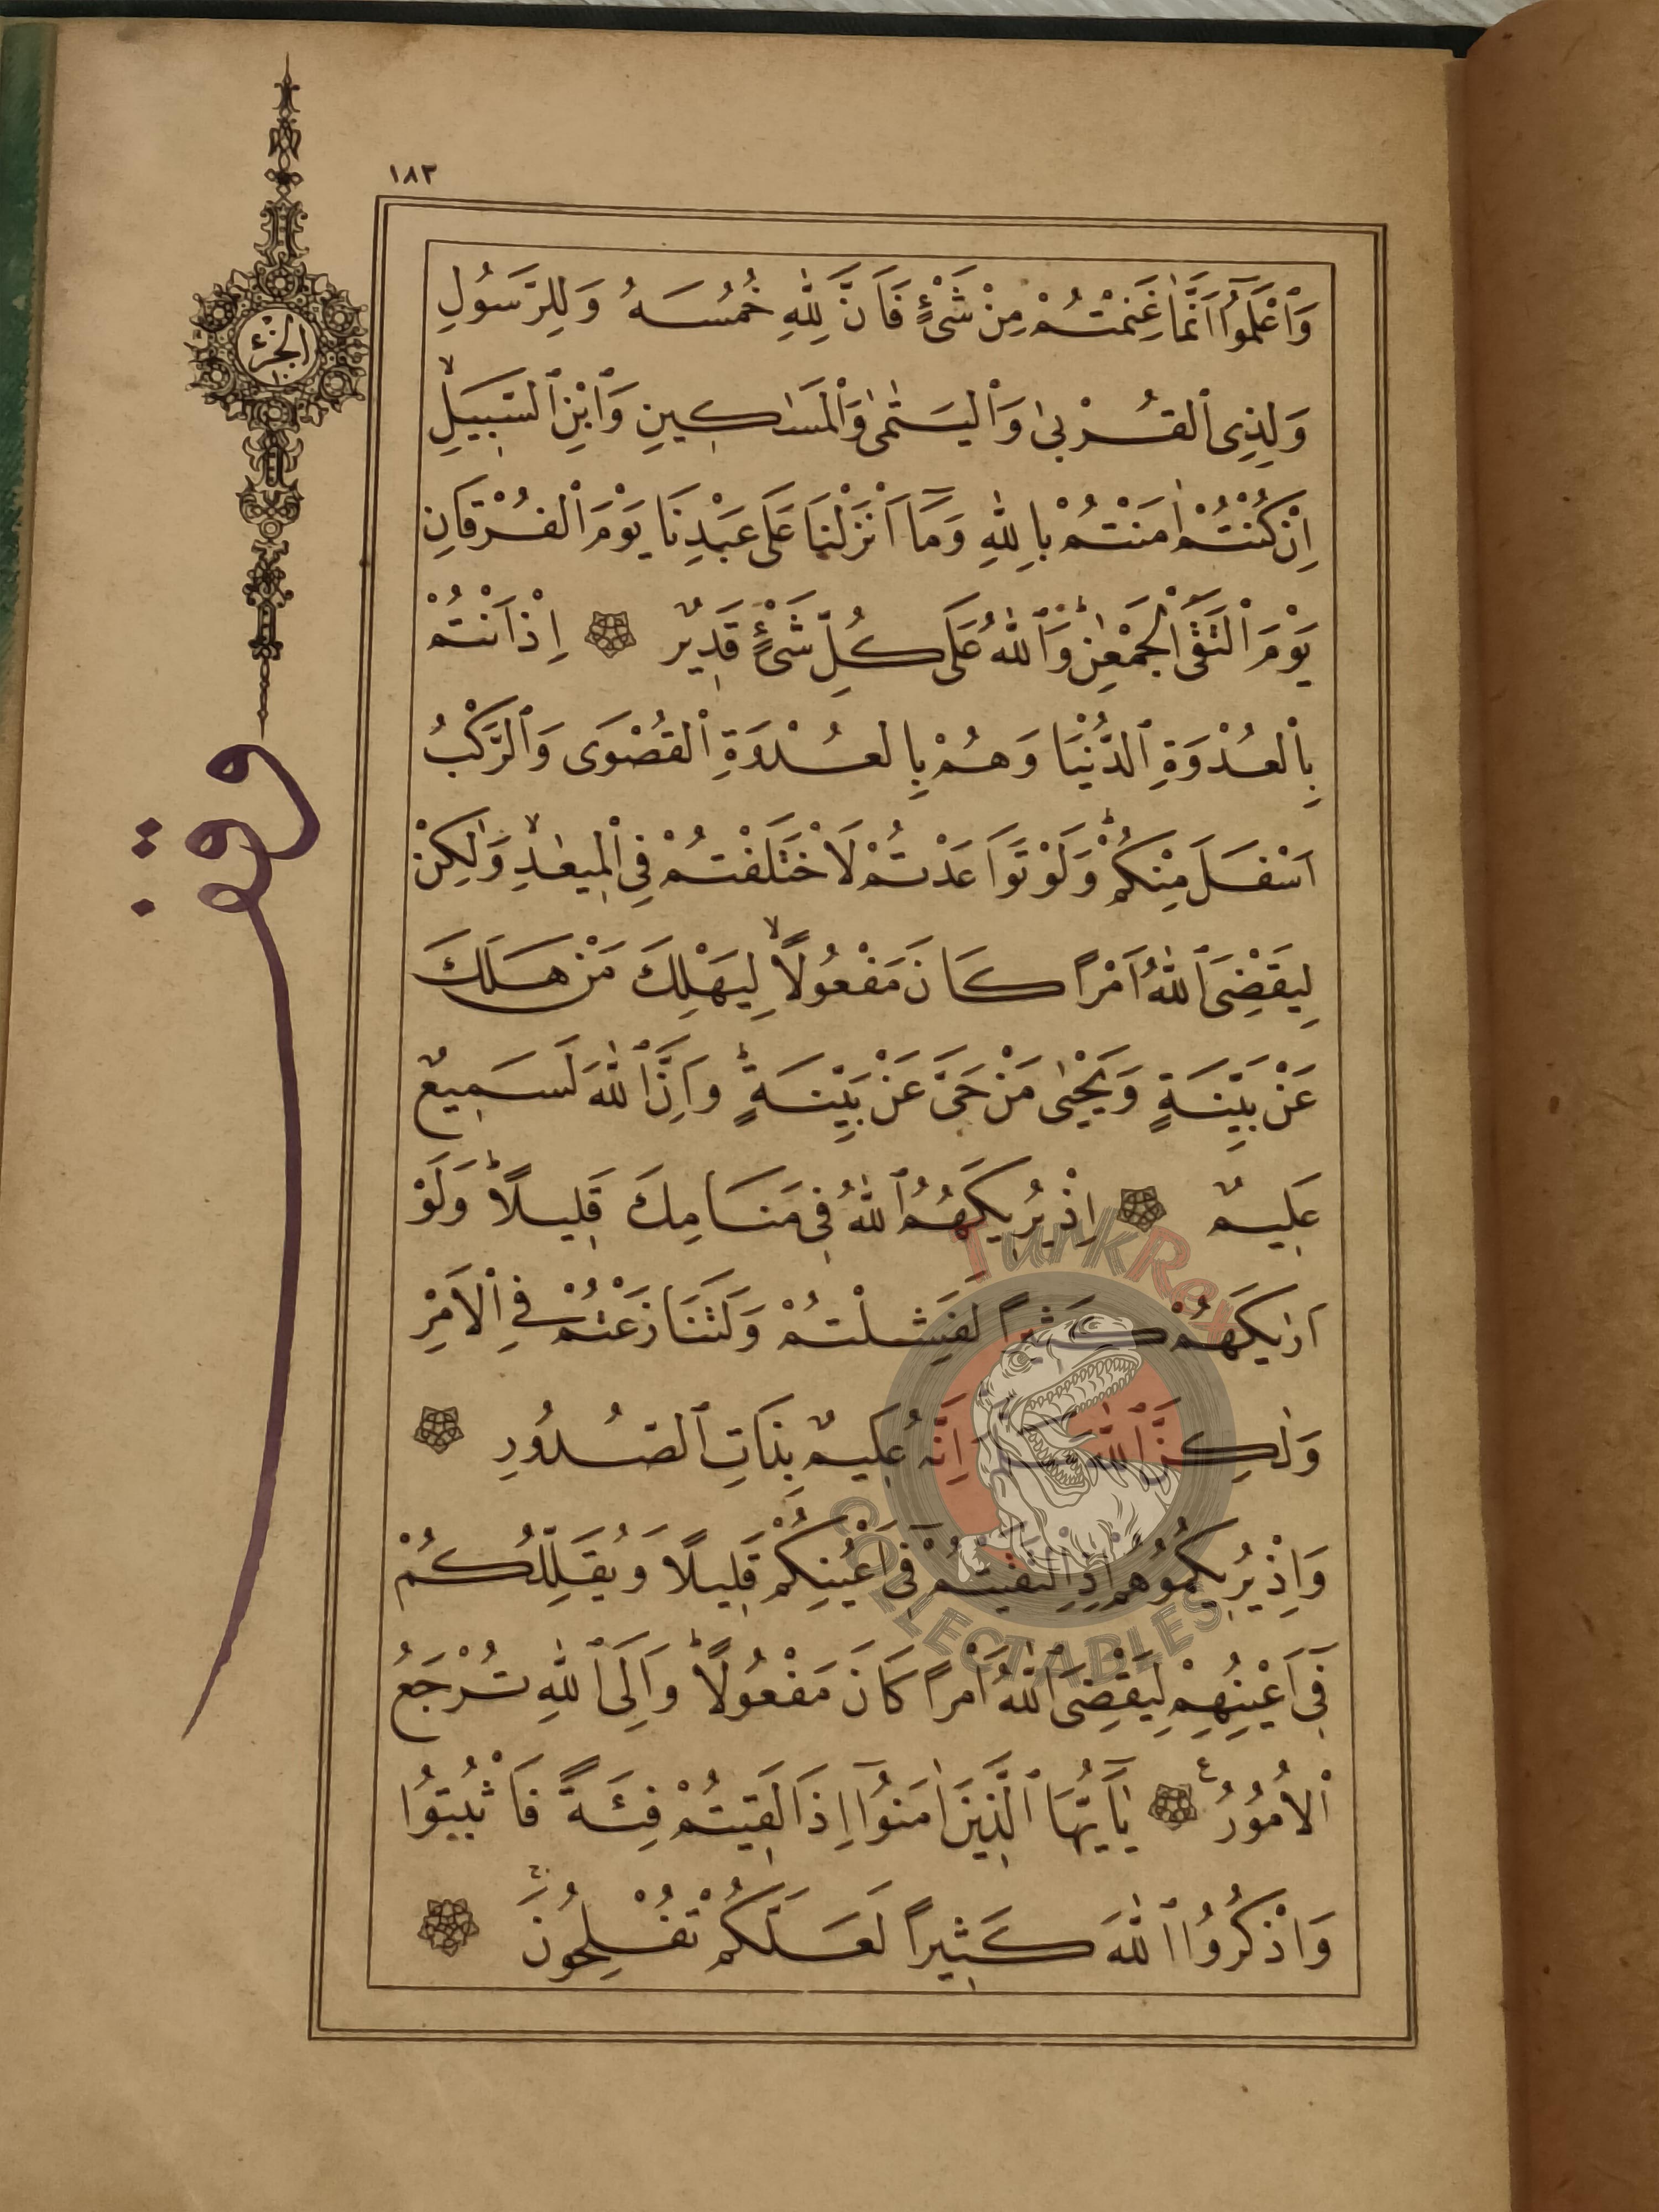 ١٨٢
الجزء
١٠
وقف
وَٱعْلَمُٓوا اَنَّمَا غَنِمْتُمْ مِنْ شَىْءٍ فَاَنَّ لِلّٰهِ خُمُسَهُ وَلِلرَّسُولِ
وَلِذِى ٱلْقُرْبٰى وَٱلْيَتَامٰى وَٱلْمَسَاكِينِ وَٱبْنِ ٱلسَّبِيلِۙ
اِنْ كُنْتُمْ اٰمَنْتُمْ بِاللّٰهِ وَمَٓا اَنْزَلْنَا عَلَى عَبْدِنَا يَوْمَ ٱلْفُرْقَانِ
يَوْمَ ٱلْتَقَى ٱلْجَمْعٰنِۜ وَٱللّٰهُ عَلَى كُلِّ شَىْءٍ قَدِيرٌ اِذْ اَنْتُمْ
بِٱلْعُدْوَةِ ٱلدُّنْيَا وَهُمْ بِالْعُدْوَةِ ٱلْقُصْوَى وَٱلرَّكْبُ
اَسْفَلَ مِنْكُمْۜ وَلَوْ تَوَاعَدْتُمْ لَاخْتَلَفْتُمْ فِى ٱلْمِيعٰدِۙ وَلٰكِنْ
لِيَقْضِىَ ٱللّٰهُ اَمْرًا كَانَ مَفْعُولًاۙ لِيَهْلِكَ مَنْ هَلَكَ
عَنْ بَيِّنَةٍ وَيَحْيٰى مَنْ حَىَّ عَنْ بَيِّنَةٍۜ وَاِنَّ ٱللّٰهَ لَسَمِيعٌ
عَلِيمٌ اِذْ يُرِيكَهُمُ ٱللّٰهُ فِى مَنَامِكَ قَلِيلًاۜ وَلَوْ
اَرٰيكَهُمْ كَثِيرًا لَفَشِلْتُمْ وَلَتَنَازَعْتُمْ فِى ٱلْاَمْرِ
وَلٰكِنَّ ٱللّٰهَ سَلَّمَ اِنَّهُ عَلِيمٌ بِذَاتِ ٱلصُّدُورِ
وَاِذْ يُرِيكُمُوهُمْ اِذِ ٱلْتَقَيْتُمْ فِٓى اَعْيُنِكُمْ قَلِيلًا وَيُقَلِّلُكُمْ
فِٓى اَعْيُنِهِمْ لِيَقْضِىَ ٱللّٰهُ اَمْرًا كَانَ مَفْعُولًاۜ وَاِلَى ٱللّٰهِ تُرْجَعُ
ٱلْاُمُورُ ع يَٓا اَيُّهَا ٱلَّذِينَ اٰمَنُٓوا اِذَا لَقِيتُمْ فِئَةً فَاثْبُتُوا
وَاذْكُرُوا ٱللّٰهَ كَثِيرًا لَعَلَّكُمْ تُفْلِحُونَ
TurkRex
COLLECTABLES